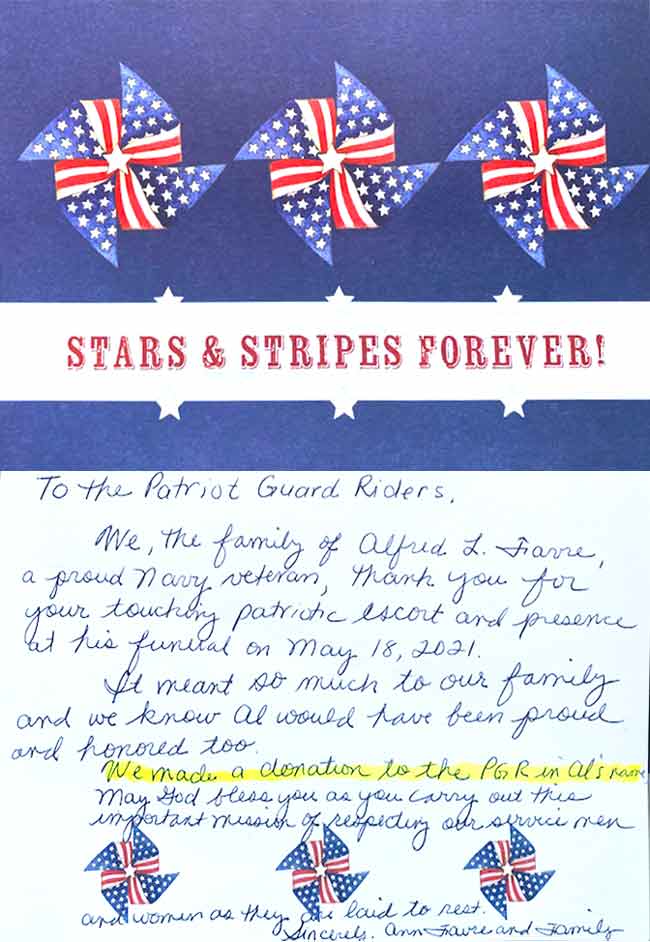 STARS & STRIPES FOREVER!
To the Patriot Guard Riders,
We, the family of Alfred L. Favre,
a proud Navy veteran, thank you for
your touching patriotic escort and presence
at his funeral on May 18, 2021.
It meant so much to our family
and we know Al would have been proud
and honored too.
We made a donation to the PGR in Al's name
May God bless you as you carry out this
important mission of respecting our service men
and women as they are laid to rest.
Sincerely, Ann Favre and Family